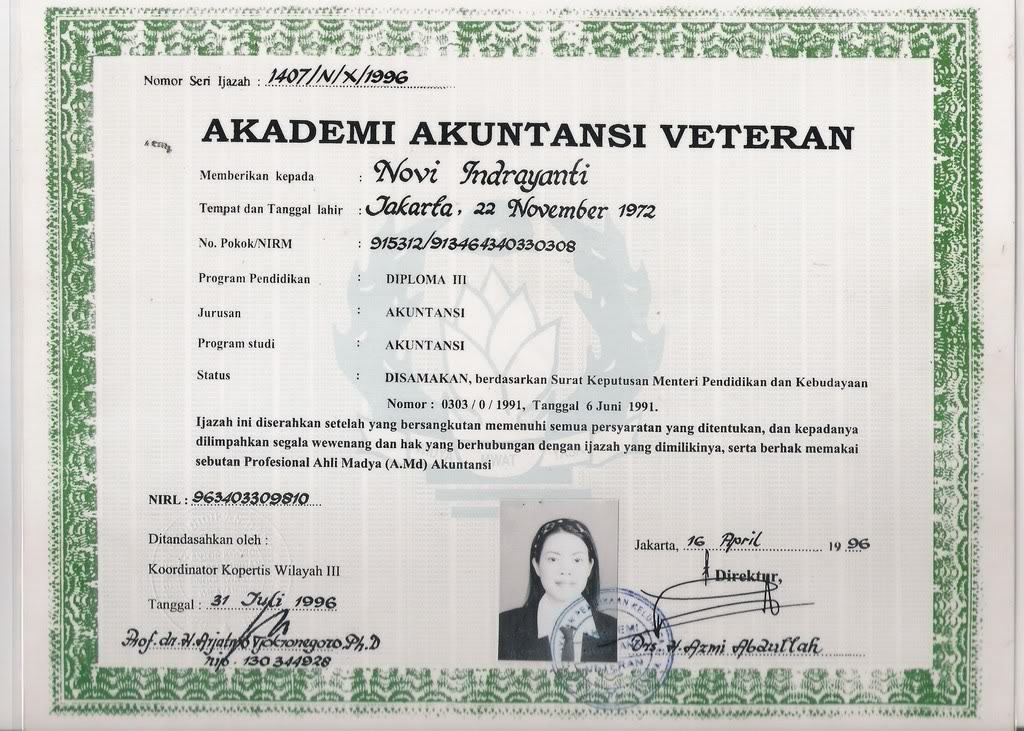 Nomor Seri Ijazah : 1407/N/X/1996
AKADEMI AKUNTANSI VETERAN
Memberikan kepada : Novi Indrayanti
Tempat dan Tanggal lahir : Jakarta, 22 November 1972
No. Pokok/NIRM : 915312/913464340330308
Program Pendidikan : DIPLOMA III
Jurusan : AKUNTANSI
Program studi : AKUNTANSI
Status : DISAMAKAN, berdasarkan Surat Keputusan Menteri Pendidikan dan Kebudayaan
Nomor : 0303 / 0 / 1991, Tanggal 6 Juni 1991.
Ijazah ini diserahkan setelah yang bersangkutan memenuhi semua persyaratan yang ditentukan, dan kepadanya
dilimpahkan segala wewenang dan hak yang berhubungan dengan ijazah yang dimilikinya, serta berhak memakai
sebutan Profesional Ahli Madya (A.Md) Akuntansi
NIRL : 963403309810
Ditandasahkan oleh :
Koordinator Kopertis Wilayah III
Tanggal : 31 Juli 1996
Prof. dr. H. Ph.D
nip. 130344928
Jakarta, 16 April 1996
Direktur,
Drs. H. Azmi Abdullah